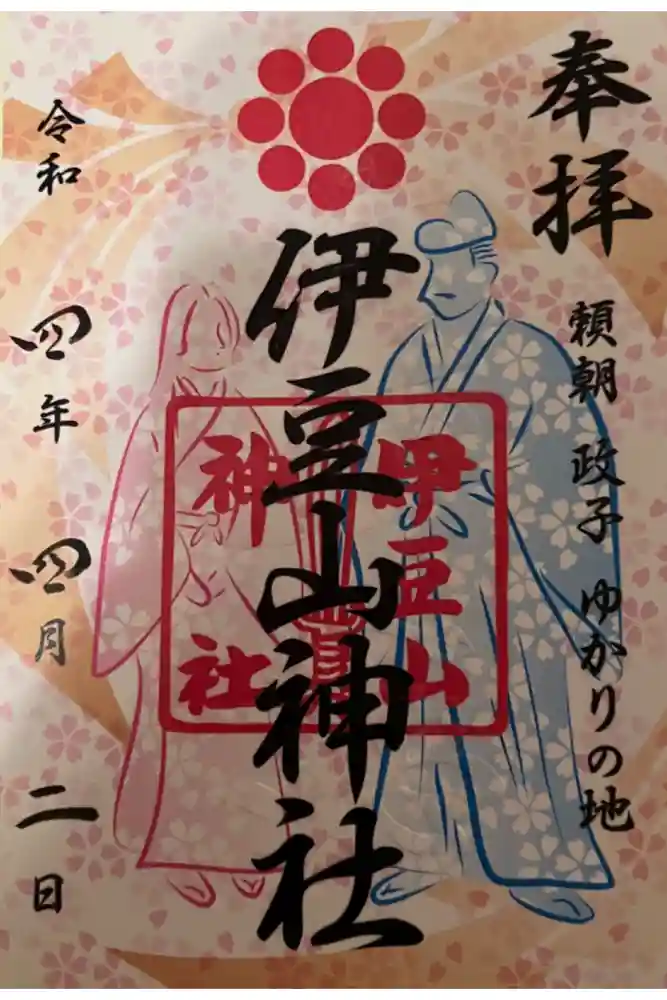 奉拝
頼朝 政子 ゆかりの地
伊豆山神社
伊豆山
神社
令和 四年 四月 二日